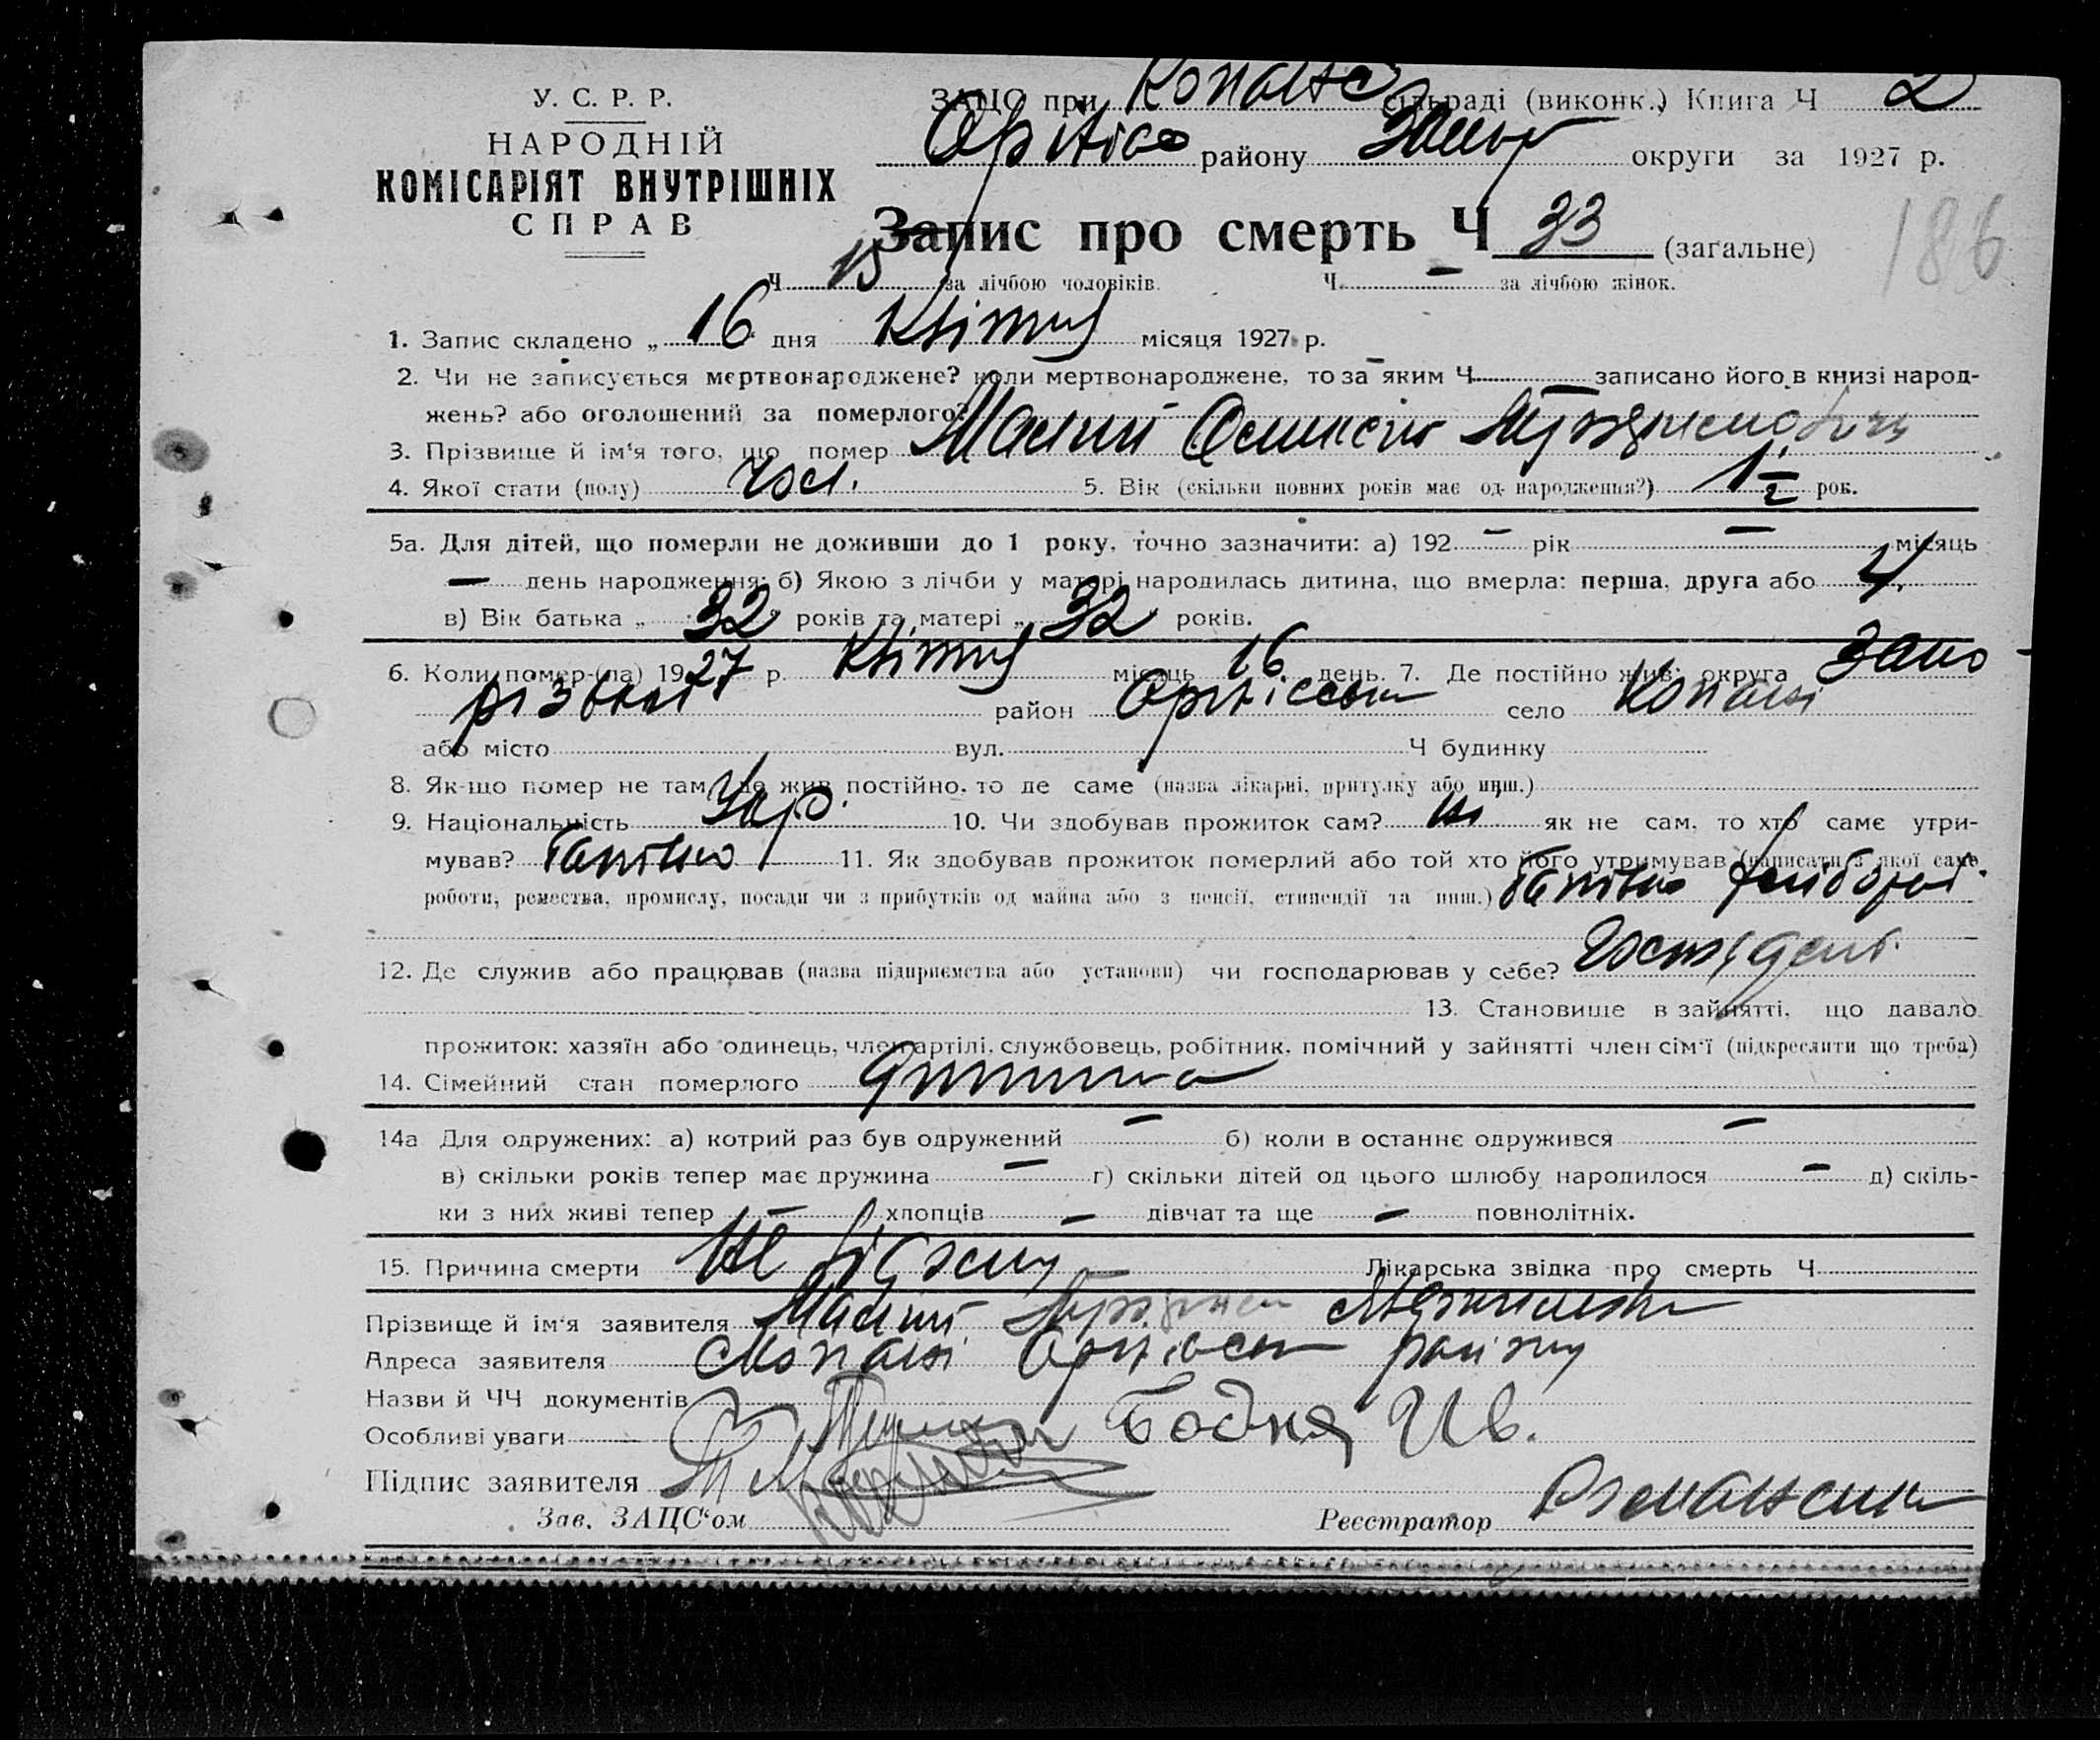 У. С. Р. Р.
НАРОДНІЙ
КОМІСАРІЯТ ВНУТРІШНІХ
СПРАВ
ЗАЦС при Копанс сільраді (виконк.) Книга Ч 2
району Запор округи за 1927 р.
Запис про смерть Ч 33 (загальне)
186
Ч 15 за лічбою чоловіків. Ч. — за лічбою жінок.
1. Запис складено „ 16 “ дня Квітня місяця 1927 р.
2. Чи не записується мертвонароджене? коли мертвонароджене, то за яким Ч — записано його в книзі народ-
жень? або оголошений за померлого?
3. Прізвище й ім‘я того, що помер Малий
4. Якої стати (полу) чол. 5. Вік (скільки повних років має од народження?) 1 1/2 рок.
5а. Для дітей, що померли не доживши до 1 року, точно зазначити: а) 192 — рік — місяць
— день народження; б) Якою з лічби у матері народилась дитина, що вмерла: перша, друга або 4.
в) Вік батька „ 32 “ років та матері „ 32 “ років.
6. Коли помер-(ла) 1927 р. Квітня місяць 16 день. 7. Де постійно жив: округа Запо-
різька район Оріхівськ село Копані
або місто вул. Ч будинку
8. Як-що помер не там, де жив постійно, то де саме (назва лікарні, притулку або инш.)
9. Національність Укр. 10. Чи здобував прожиток сам? ні як не сам, то хто саме утри-
мував? Батько 11. Як здобував прожиток померлий або той хто його утримував (написати з якої саме
роботи, ремества, промислу, посади чи з прибутків од майна або з пенсії, стипендії та инш.) Батько хлібороб.
12. Де служив або працював (назва підприємства або установи) чи господарював у себе?
13. Становище в зайнятті, що давало
прожиток: хазяїн або одинець, член артілі, службовець, робітник, помічний у зайнятті член сім‘ї (підкреслити що треба)
14. Сімейний стан померлого Дитина
14а Для одружених: а) котрий раз був одружений — б) коли в останнє одружився —
в) скільки років тепер має дружина — г) скільки дітей од цього шлюбу народилося — д) скіль-
ки з них живі тепер — хлопців — дівчат та ще — повнолітніх.
15. Причина смерти Не відому Лікарська звідка про смерть Ч
Прізвище й ім‘я заявителя Малий
Адреса заявителя Копані Оріхівськ району
Назви й ЧЧ документів
Особливі уваги Бодня Ив.
Підпис заявителя
Зав. ЗАЦС‘ом Реєстратор